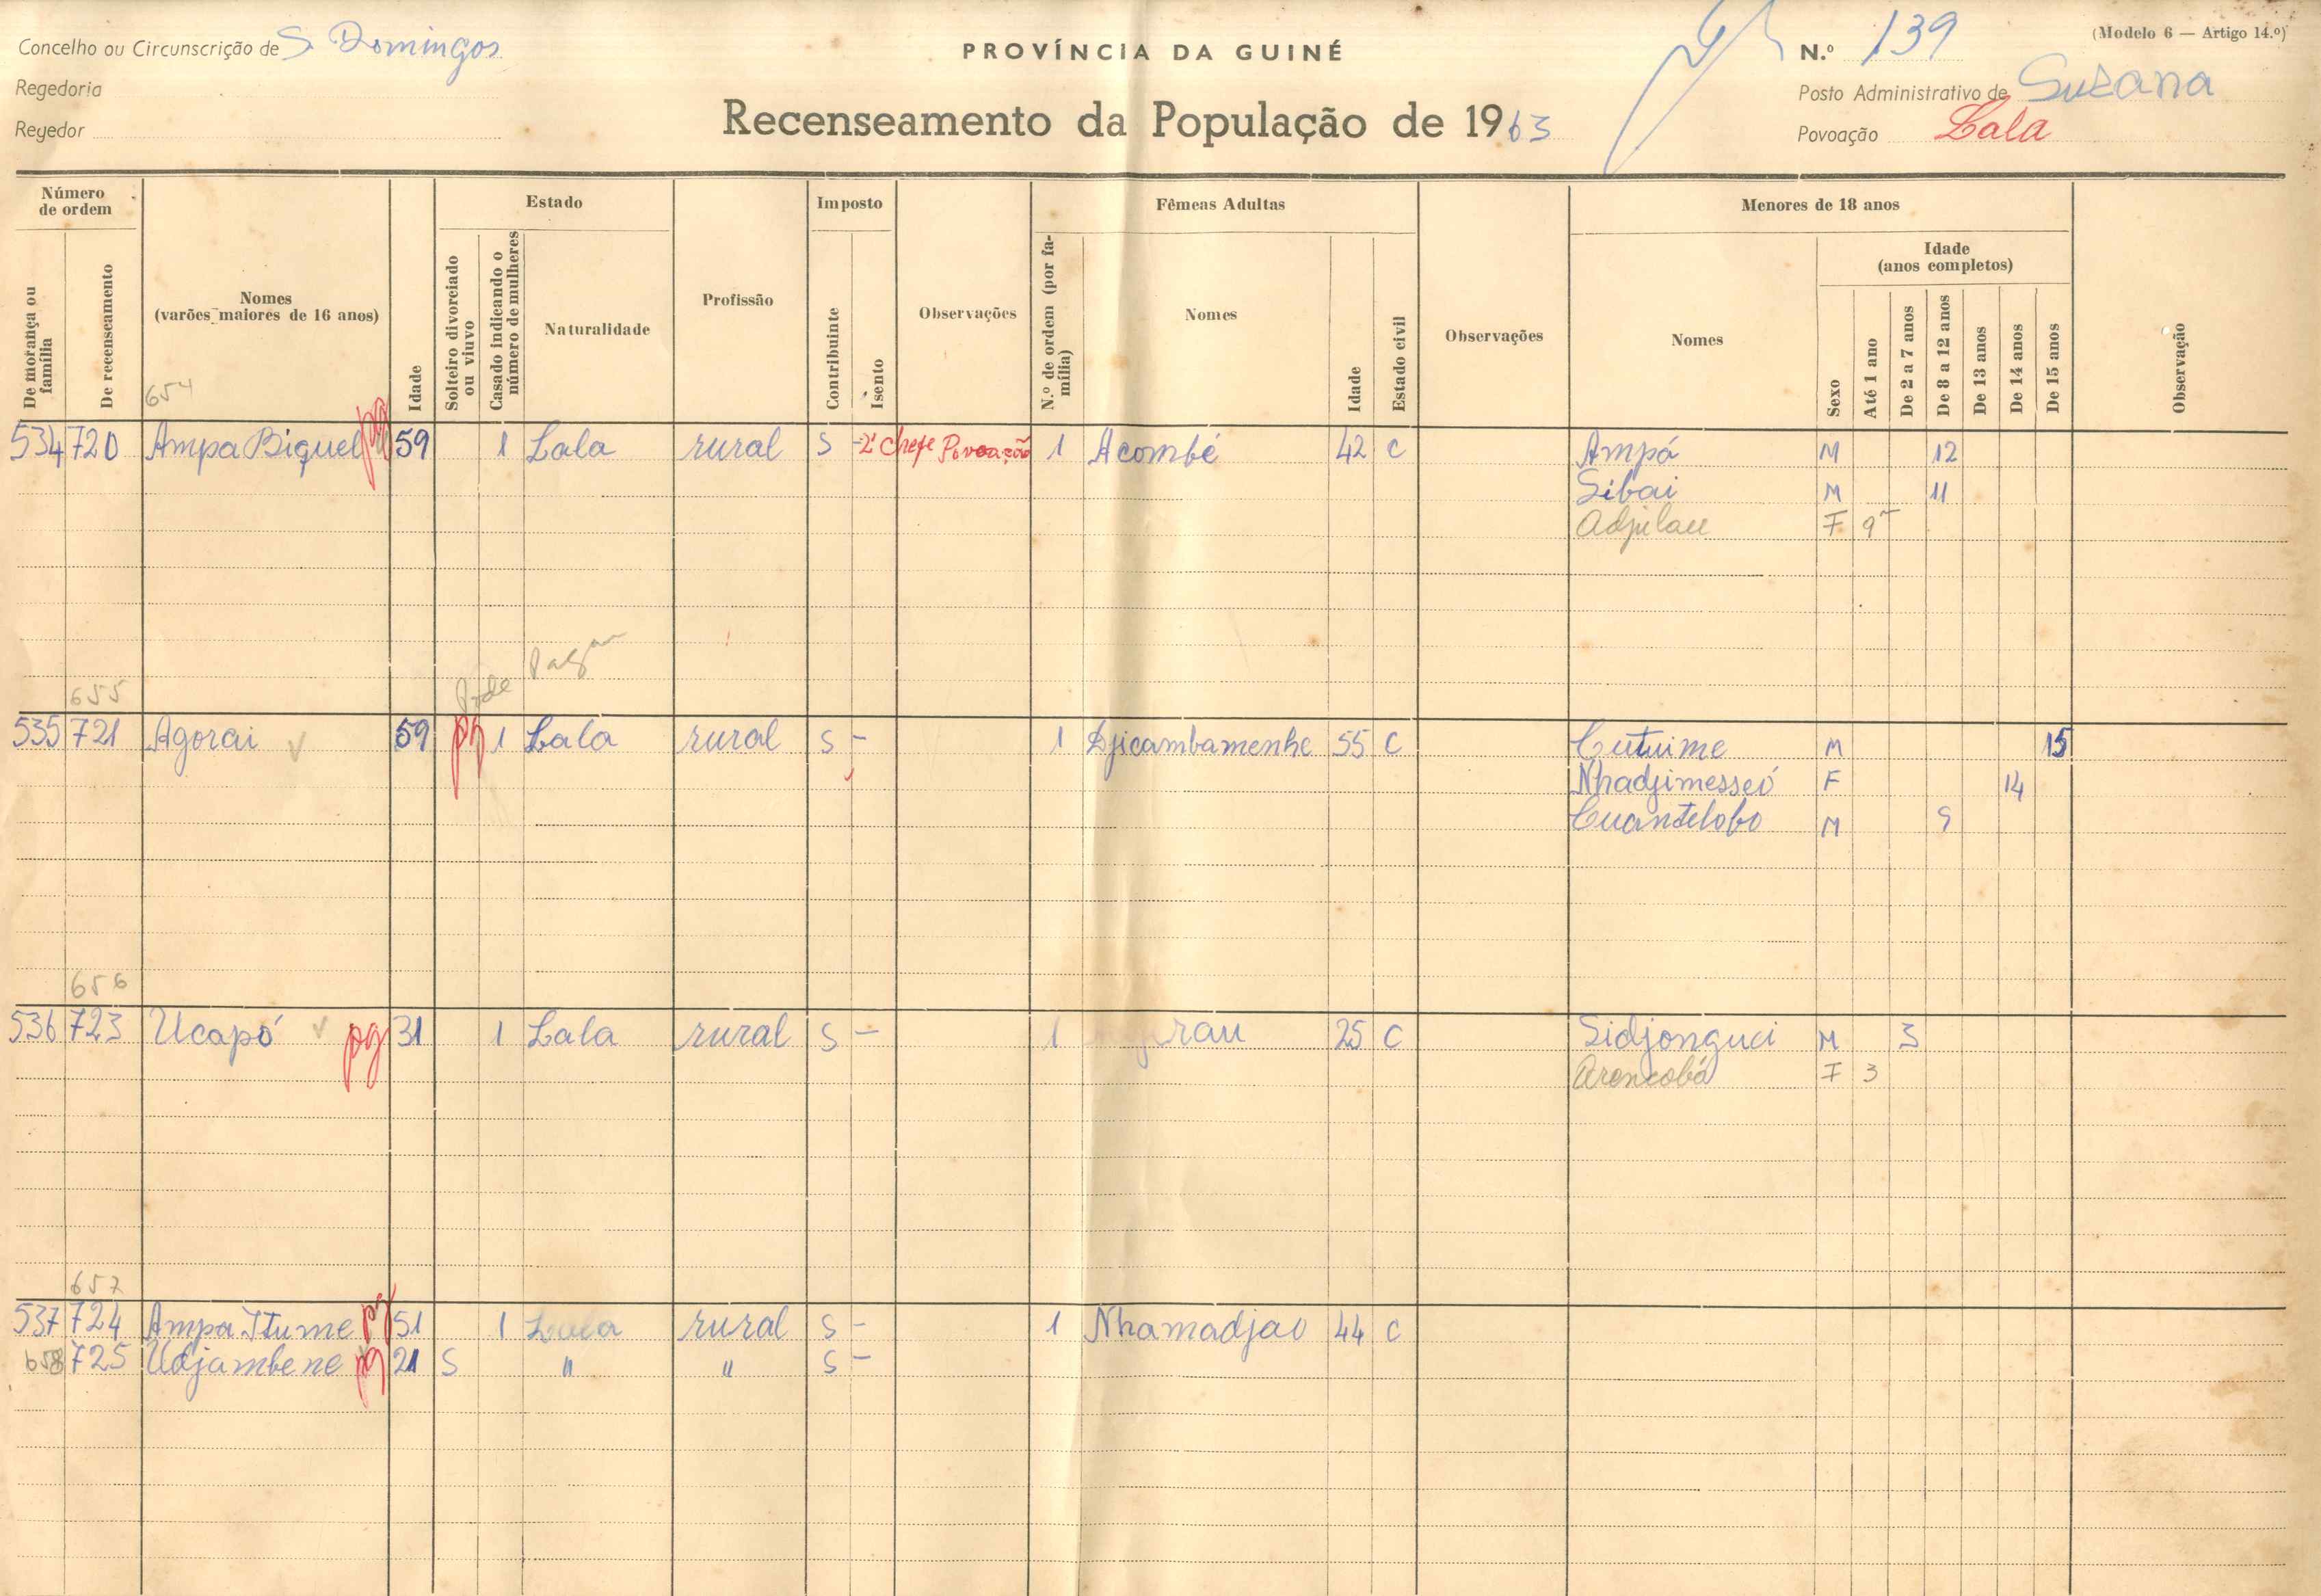 Concelho ou Circunscrição de S. Domingos
PROVÍNCIA DA GUINÉ
N.º 139
(Modelo 6 — Artigo 14.º)
Regedoria
Posto Administrativo de Suzana
Regedor
Recenseamento da População de 1963
Povoação Lala
Número de ordem
Estado
Imposto
Fêmeas Adultas
Menores de 18 anos
De morança ou família
De recenseamento
Nomes (varões maiores de 16 anos)
Idade
Solteiro divorciado ou viuvo
Casado indicando o número de mulheres
Naturalidade
Profissão
Contribuinte
Isento
Observações
N.º de ordem (por família)
Nomes
Idade
Estado civil
Observações
Nomes
Sexo
Idade (anos completos)
Até 1 ano
De 2 a 7 anos
De 8 a 12 anos
De 13 anos
De 14 anos
De 15 anos
Observação
654
534 720 Ampa Biquel pg 59 1 Lala rural S - 2º Chefe Povoação 1 Acombé 42 C Ampá M 12
Sibai M 11
Adjilau F 9
Pode Pagar
655
535 721 Agorai 59 pg 1 Lala rural S - 1 Djicambamenhe 55 C Cutuime M 15
Nhadjimesseó F 14
Cuantelobo M 9
656
536 723 Ucapó pg 31 1 Lala rural S - 1 25 C Sidjonguci M 3
Arencobá F 3
657
537 724 Ampa Itume pg 51 1 Lala rural S - 1 Nhamadjao 44 C
658 725 Udjambene pg 21 S " " S -